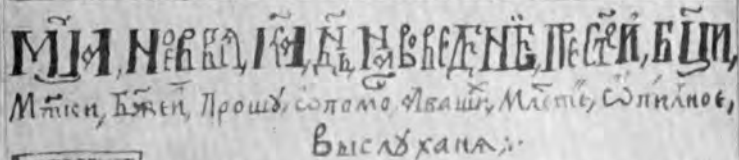 Мц҃а, Ноевра, к҃а, дн҃ѧ, На Воведенїе, Прест҃ой, Бц҃и,
Мт҃ки, Бж҃ей, Прошу, ѡ помо, А ваши, Мл҃сте, ѿ пилное,
Выслꙋханѧ;·